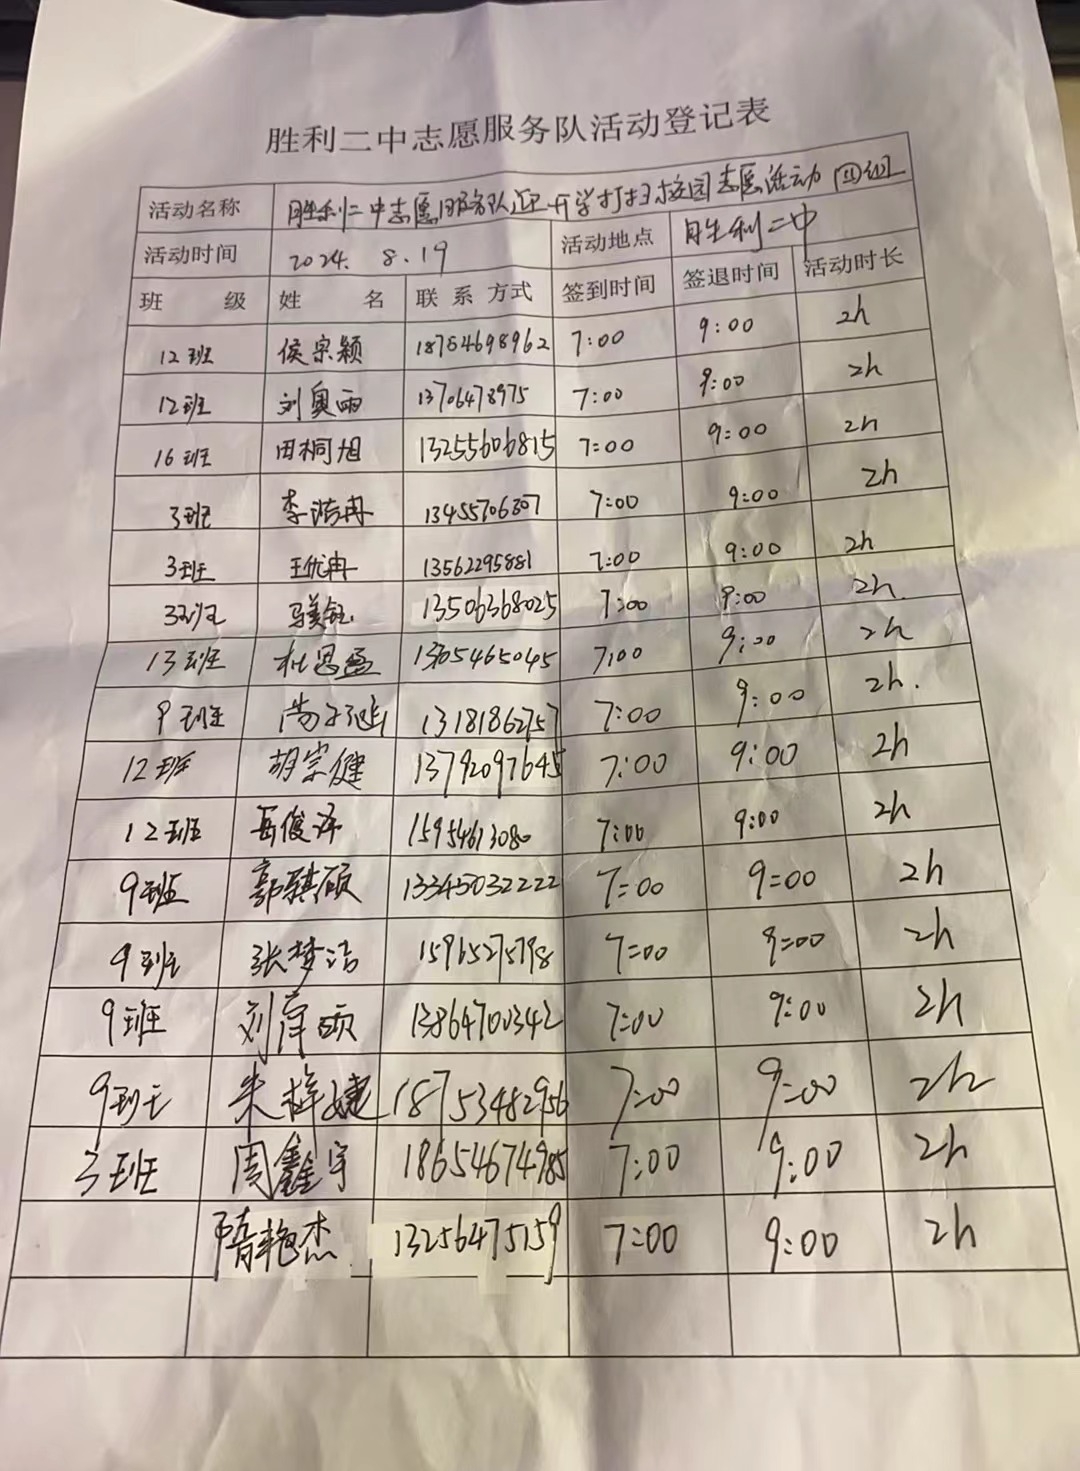 胜利二中志愿服务队活动登记表
活动名称 胜利二中志愿服务队迎开学打扫校园志愿活动 四组
活动时间 2024. 8.19 活动地点 胜利二中
班 级 姓 名 联系方式 签到时间 签退时间 活动时长
12班 侯宗颖 18754698962 7:00 9:00 2h
12班 刘奥雨 13706478975 7:00 9:00 2h
16班 田桐旭 13255606815 7:00 9:00 2h
3班 李浩冉 13455706807 7:00 9:00 2h
3班 王优冉 13562295881 7:00 9:00 2h
3班 马美钰 13506368025 7:00 9:00 2h.
13班 杜思盈 13705465045 7:00 9:00 2h
9班 13181862757 7:00 9:00 2h.
12班 胡宗健 13792097645 7:00 9:00 2h
12班 岳俊泽 15954613080 7:00 9:00 2h
9班 郭骐硕 13345032222 7=00 9=00 2h
9班 张梦洁 15965275798 7=00 9=00 2h
9班 刘萍颐 13864700342 7:00 9:00 2h
9班 朱梓婕 18753482956 7:00 9=00 2h
3班 周鑫宇 18654674985 7:00 9:00 2h
隋艳杰 13256475159 7:00 9:00 2h